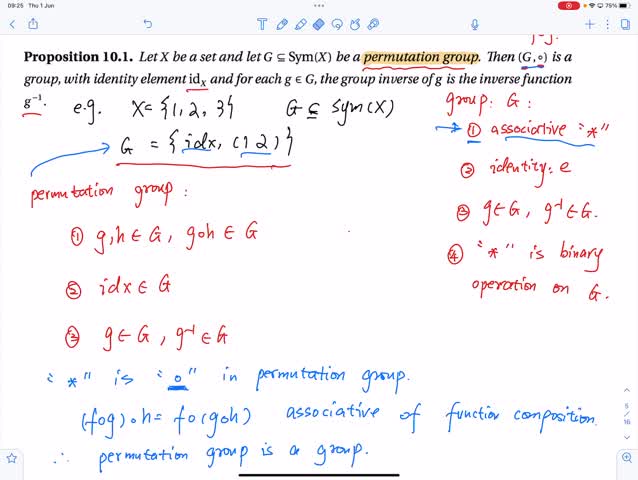 09:25 Thu 1 Jun
75%
Proposition 10.1. Let X be a set and let G ⊆ Sym(X) be a permutation group. Then (G, ∘) is a
group, with identity element id_X and for each g ∈ G, the group inverse of g is the inverse function
g⁻¹.
e.g. X = {1, 2, 3} G ⊆ Sym(X)
G = {idx, (1 2)}
permutation group :
① g,h ∈ G, g∘h ∈ G
② idx ∈ G
③ g ∈ G, g⁻¹ ∈ G
group: G :
① associative "*"
② identity: e
③ g ∈ G, g⁻¹ ∈ G.
④ "*" is binary
operation on G.
"*" is "∘" in permutation group.
(f∘g)∘h = f∘(g∘h) associative of function composition.
∴ permutation group is a group.
5
16